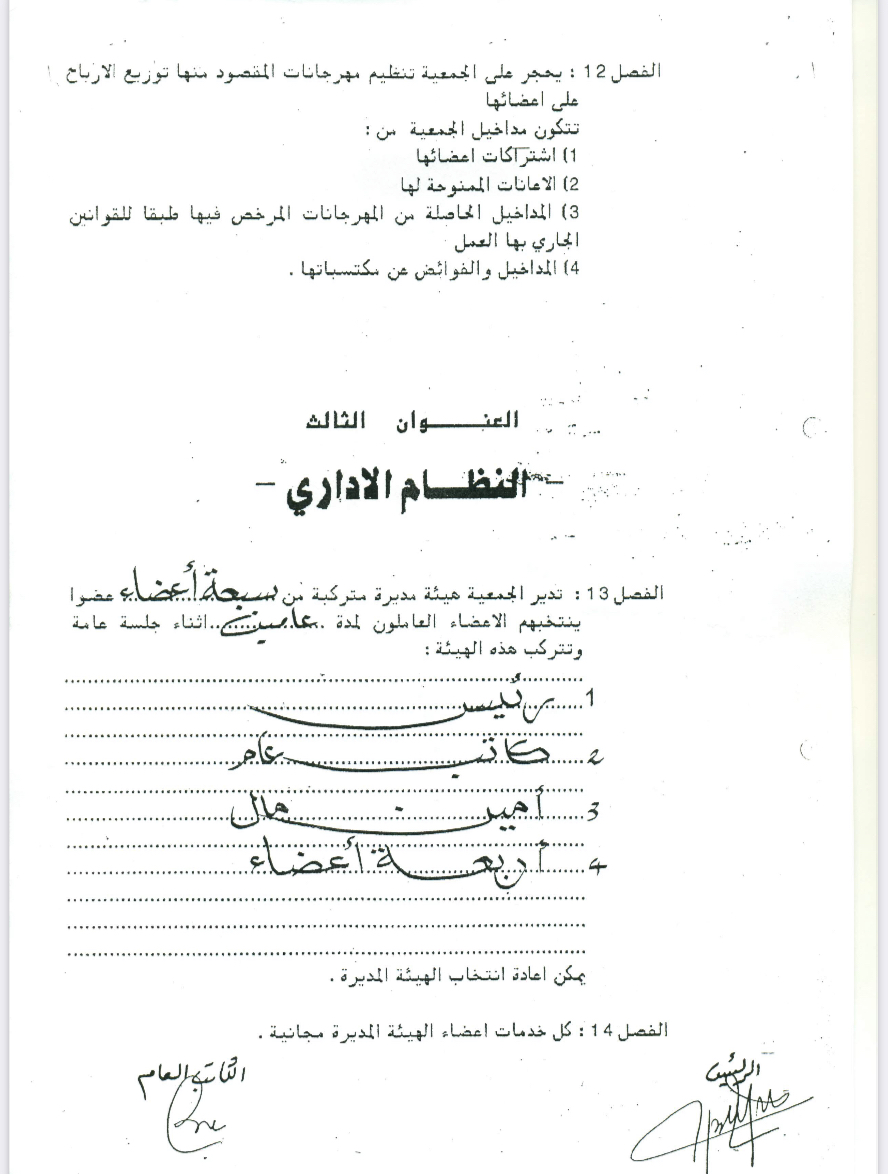 الفصل 12 : يحجر على الجمعية تنظيم مهرجانات المقصود منها توزيع الارباح
على اعضائها
تتكون مداخيل الجمعية من :
1) اشتراكات اعضائها
2) الاعانات الممنوحة لها
3) المداخيل الحاصلة من المهرجانات المرخص فيها طبقا للقوانين
الجاري بها العمل
4) المداخيل والفوائض عن مكتسباتها .
العنـــــوان الثالث
- النظـــام الاداري -
الفصل 13 : تدير الجمعية هيئة مديرة متركبة من سبعة أعضاء عضوا
ينتخبهم الاعضاء العاملون لمدة ..عامين..اثناء جلسة عامة
وتتركب هذه الهيئة :
1 رئيس
2 كاتب عام
3 أمين مال
4 أربعة أعضاء
يمكن اعادة انتخاب الهيئة المديرة .
الفصل 14 : كل خدمات اعضاء الهيئة المديرة مجانية .
الرئيس
الكاتب العام